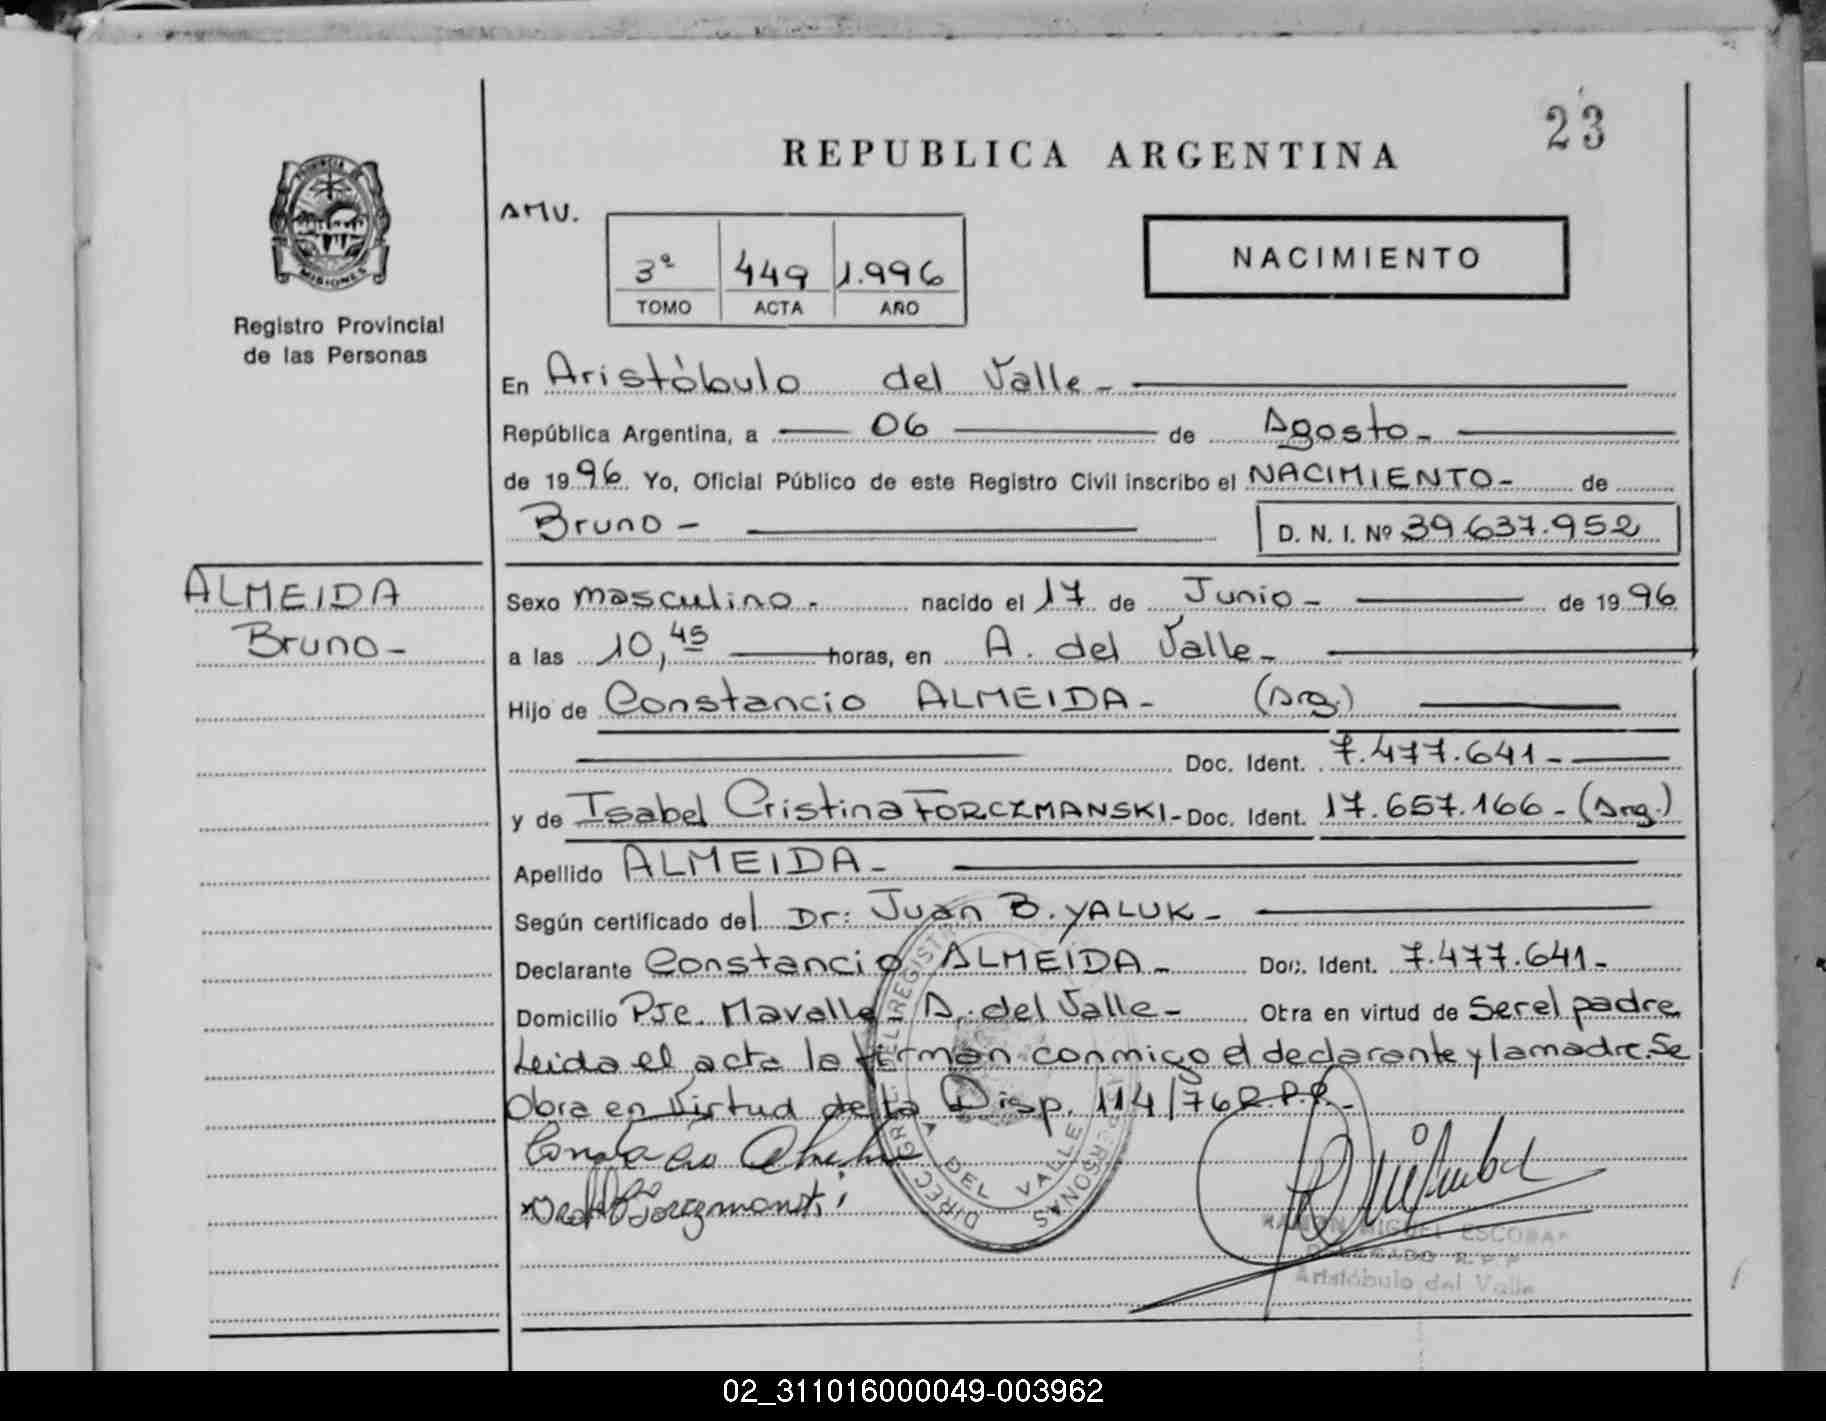 23
REPUBLICA ARGENTINA
PROVINCIA DE
MISIONES
Registro Provincial
de las Personas
AMV.
3ª 449 1.996
TOMO ACTA AÑO
NACIMIENTO
En Aristóbulo del Valle-
República Argentina, a 06 de Agosto-
de 1996 Yo, Oficial Público de este Registro Civil inscribo el NACIMIENTO- de
Bruno- D. N. I. Nº 39.637.952
ALMEIDA
Bruno-
Sexo masculino. nacido el 17 de Junio- de 1996
a las 10,45 horas, en A. del Valle-
Hijo de Constancio ALMEIDA- (Arg.)
Doc. Ident. 7.477.641-
y de Isabel Cristina FORCZMANSKI- Doc. Ident. 17.657.166-(Arg.)
Apellido ALMEIDA-
Según certificado del Dr: Juan B. YALUK-
Declarante Constancio ALMEIDA- Doc. Ident. 7.477.641-
Domicilio Pje. Mavalle- A. del Valle- Obra en virtud de Ser el padre
Leida el acta la firman conmigo el declarante y la madre. Se
Obra en Virtud de la Disp. 114/76 R.P.P.-
DEL VALLE
PERSONAS
RAMON MIGUEL ESCOBAR
DELEGADO R.P.P
Aristóbulo del Valle
02_311016000049-003962